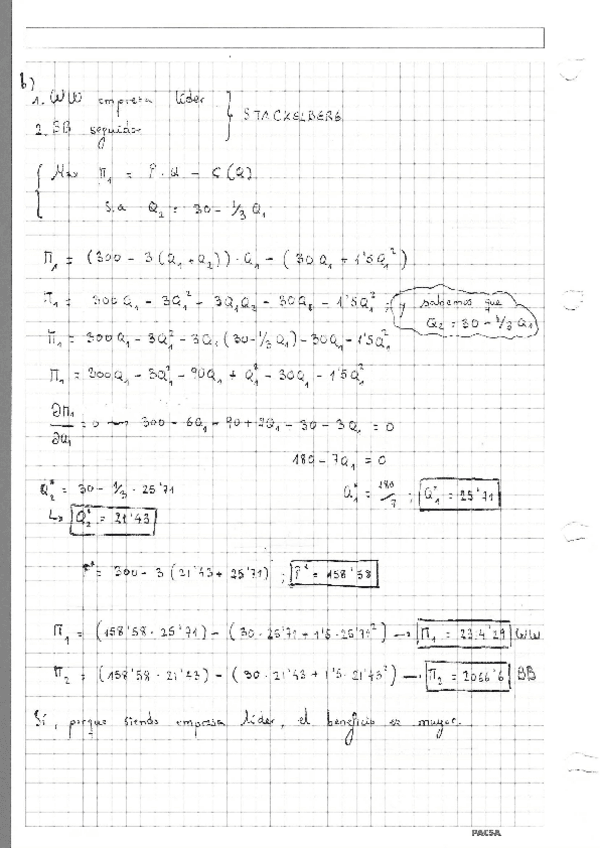 b)
1. WW empresa líder
2. SB seguidor
} STACKELBERG
Max Π₁ = P·Q - C(Q)
S.a Q₂ = 30 - 1/3 Q₁
Π₁ = (300 - 3(Q₁ + Q₂))·Q₁ - (30Q₁ + 1'5Q₁²)
Π₁ = 300Q₁ - 3Q₁² - 3Q₁Q₂ - 30Q₁ - 1'5Q₁² ; y sabemos que
Q₂ = 30 - 1/3 Q₁
Π₁ = 300Q₁ - 3Q₁² - 3Q₁(30 - 1/3Q₁) - 30Q₁ - 1'5Q₁²
Π₁ = 300Q₁ - 3Q₁² - 90Q₁ + Q₁² - 30Q₁ - 1'5Q₁²
∂Π₁/∂Q₁ = 0 → 300 - 6Q₁ - 90 + 2Q₁ - 30 - 3Q₁ = 0
180 - 7Q₁ = 0
Q₁* = 180/7 ; Q₁* = 25'71
Q₂* = 30 - 1/3 · 25'71
↳ Q₂* = 21'43
P* = 300 - 3(21'43 + 25'71) ; P* = 158'58
Π₁ = (158'58 · 25'71) - (30 · 25'71 + 1'5 · 25'71²) → Π₁ = 23.4'29 WW
Π₂ = (158'58 · 21'43) - (30 · 21'43 + 1'5 · 21'43²) → Π₂ = 2066'6 BB
Sí, porque siendo empresa líder, el beneficio es mayor.
PACSA